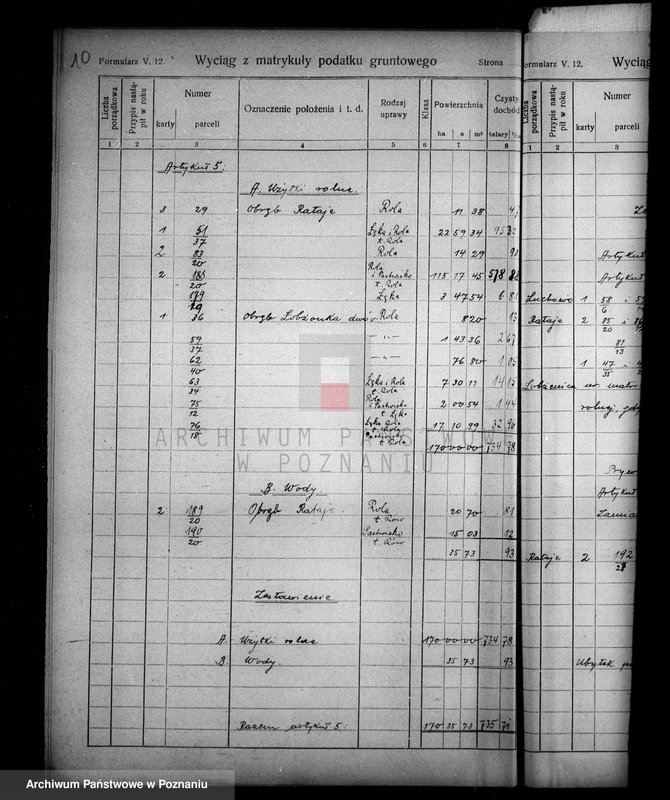 10
Formularz V. 12.
Wyciąg z matrykuły podatku gruntowego
Strona
Liczba porządkowa
Przypis nastąpił w roku
Numer
karty
parceli
Oznaczenie położenia i t. d.
Rodzaj uprawy
Klasa
Powierzchnia
ha a m²
Czysty dochód
talary
1 2 3 4 5 6 7 8
Artykuł 5:
A. Użytki rolne
3 29 Obręb Rataje Rola 11 38
1 51/37 Łąka i Rola t. Rola 22 59 34 95 32
2 83/20 Rola 14 29 90
2 188/20 Rola i Pastwisko t. Rola 115 17 45 578 88
179/29 Łąka 3 47 54
1 36 Obręb Lobżonka dwór Rola 8 20 13
59/37 -"- 1 43 36
62/40 -"- 76 80 1 05
63/34 Łąka i Rola t. Rola 7 30 11 14 15
75/12 Rola i Pastwisko t. Łąka 2 00 54 1 44
76/18 Łąka Rola t. Rola Pastwisko t. Rola 17 10 99 32 96
170 00 00 734 78
B. Wody
2 189/20 Obręb Rataje Rola t. Rów 20 70 81
190/20 Pastwisko t. Rów 15 03 12
35 73 93
Zestawienie
A. Użytki rolne 170 00 00 734 78
B. Wody. 35 73 93
Razem artykuł 5: 170 35 73 735 71
Formularz V. 12.
Wyciąg
Liczba porządkowa
Przypis nastąpił w roku
Numer
karty
parceli
1 2 3
Artykuł
Artykuł
Luchowo 1 58/6
Rataje 2 85/20
81/13
1 47/35
Łobżenica
Artykuł
Rataje 2 192
Ubytek
ARCHIWUM PAŃSTWOWE
W POZNANIU
Archiwum Państwowe w Poznaniu